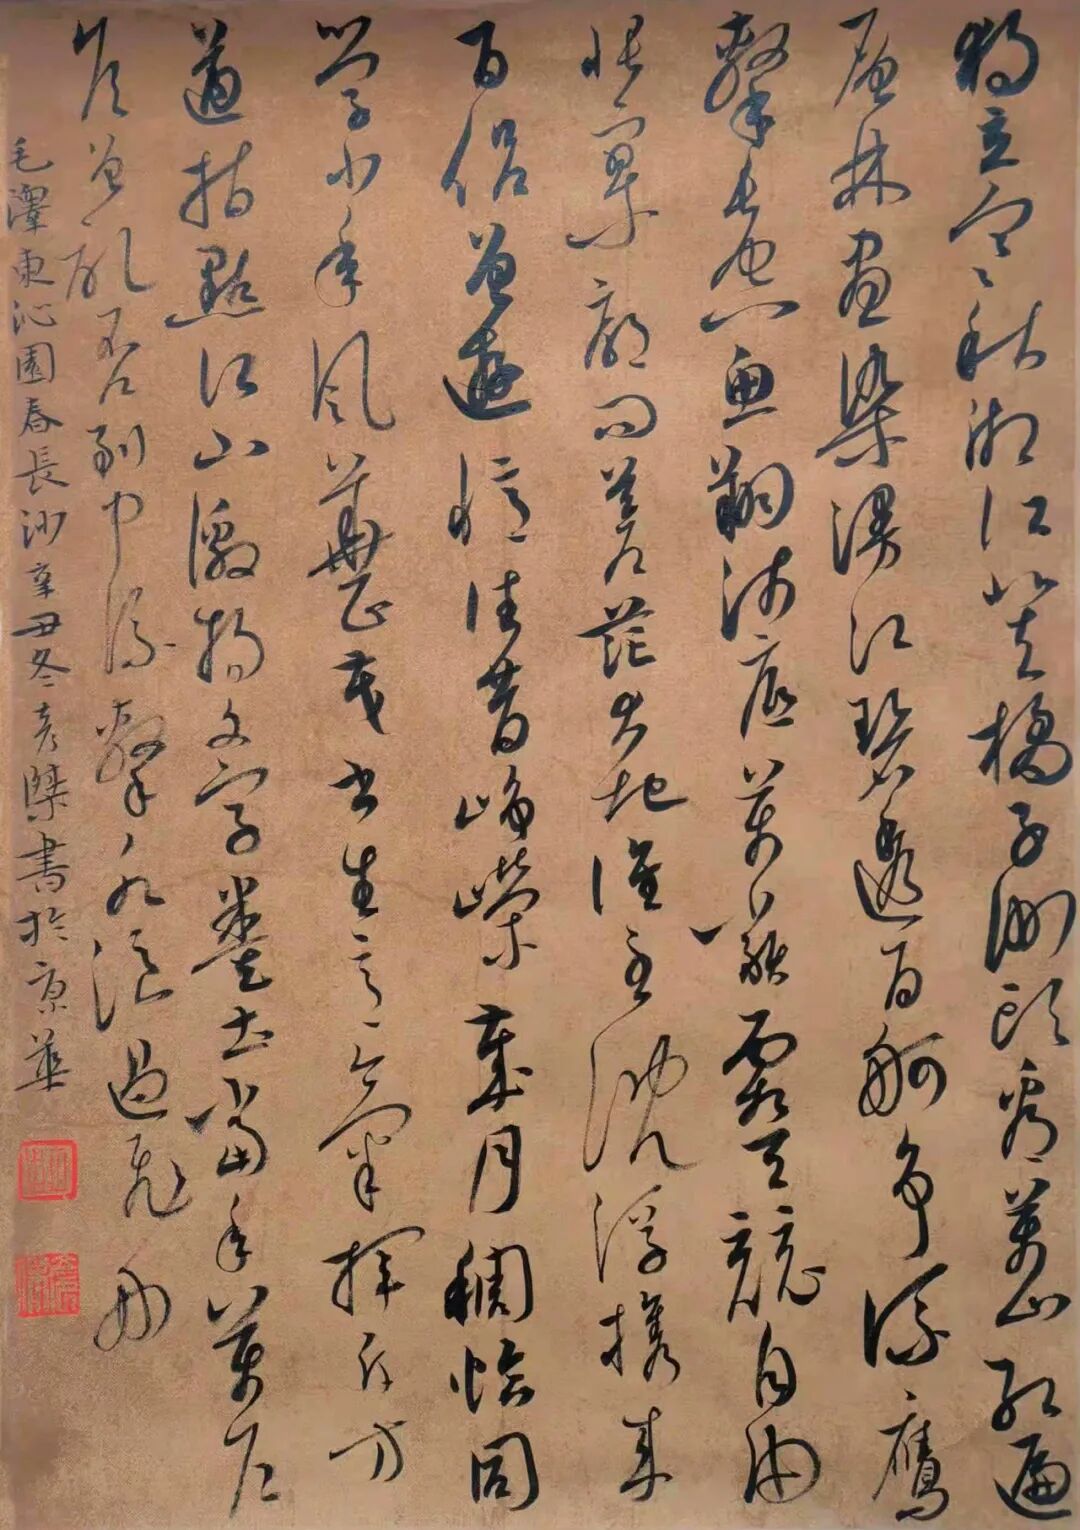 獨立寒秋湘江北去橘子洲頭看萬山紅遍
層林盡染漫江碧透百舸争流鷹
擊長空魚翔淺底萬類霜天競自由
悵寥廓問蒼茫大地誰主沉浮携來
百侣曾遊憶往昔崢嶸歲月稠恰同
學少年風華正茂書生意氣揮斥方
遒指點江山激揚文字糞土當年萬户
侯曾記否到中流擊水浪遏飛舟
毛澤東沁園春長沙辛丑冬彦傑書於京華